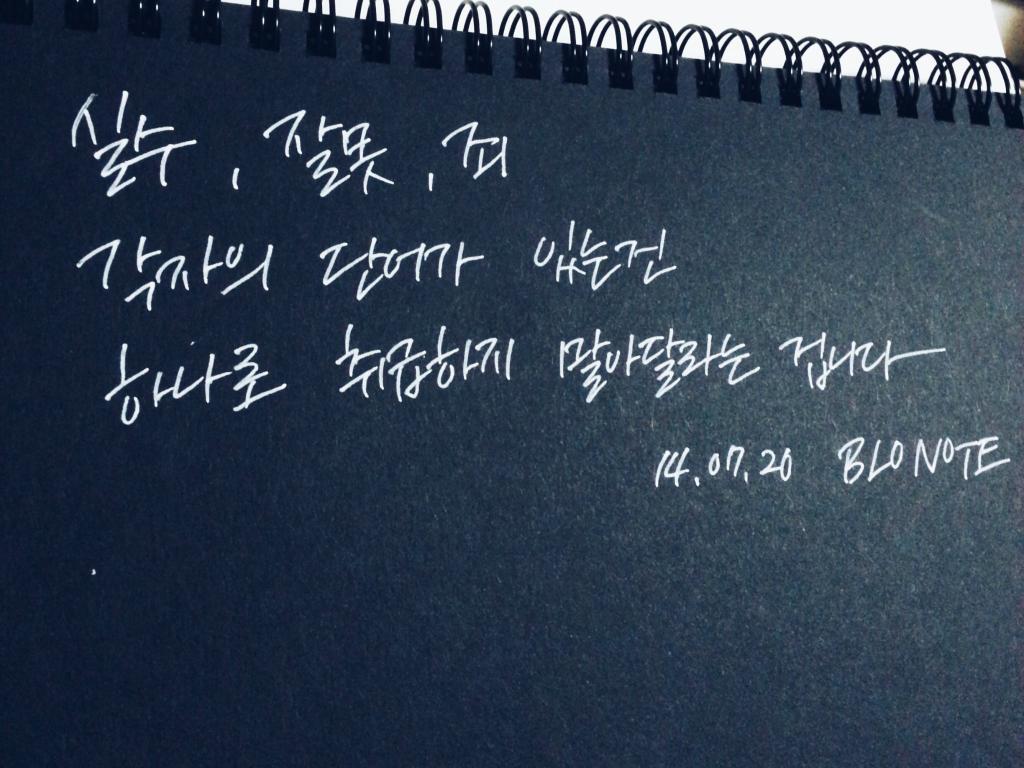 실수, 잘못, 죄
각자의 단어가 있는건
하나로 취급하지 말아달라는 겁니다
14.07.20 BLONOTE